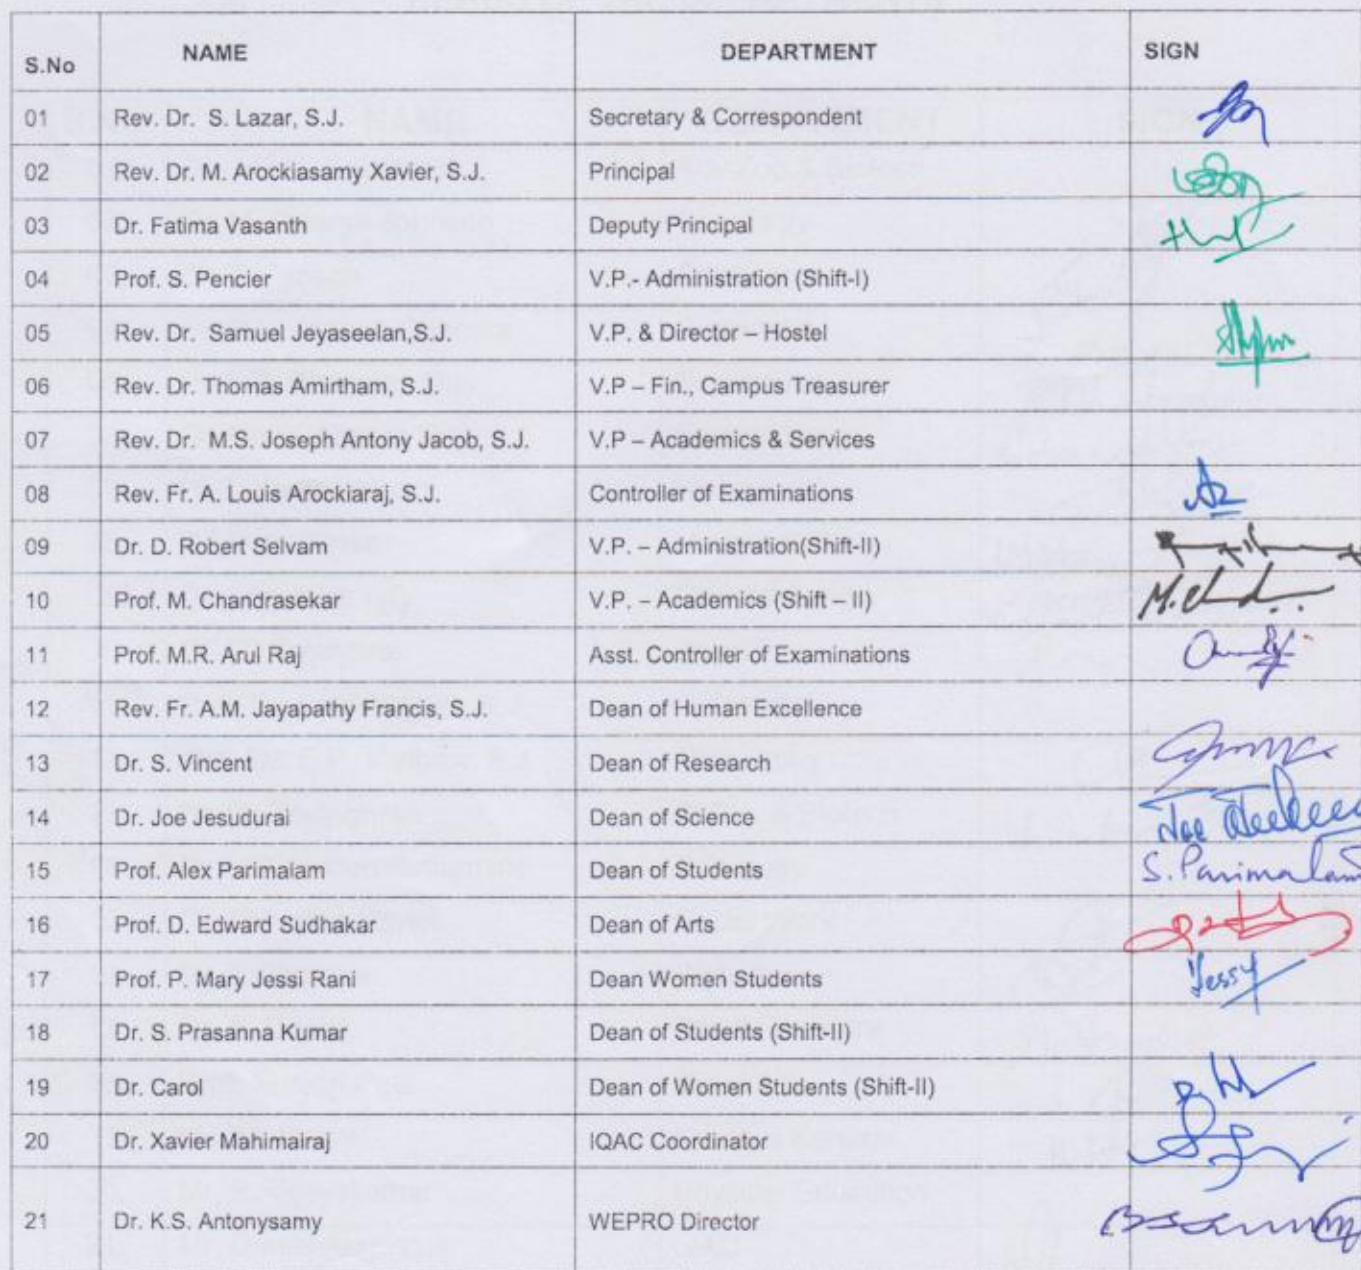 S.No NAME DEPARTMENT SIGN
01 Rev. Dr. S. Lazar, S.J. Secretary & Correspondent
02 Rev. Dr. M. Arockiasamy Xavier, S.J. Principal
03 Dr. Fatima Vasanth Deputy Principal
04 Prof. S. Pencier V.P.- Administration (Shift-I)
05 Rev. Dr. Samuel Jeyaseelan,S.J. V.P. & Director – Hostel
06 Rev. Dr. Thomas Amirtham, S.J. V.P – Fin., Campus Treasurer
07 Rev. Dr. M.S. Joseph Antony Jacob, S.J. V.P – Academics & Services
08 Rev. Fr. A. Louis Arockiaraj, S.J. Controller of Examinations
09 Dr. D. Robert Selvam V.P. – Administration(Shift-II)
10 Prof. M. Chandrasekar V.P. – Academics (Shift – II)
11 Prof. M.R. Arul Raj Asst. Controller of Examinations
12 Rev. Fr. A.M. Jayapathy Francis, S.J. Dean of Human Excellence
13 Dr. S. Vincent Dean of Research
14 Dr. Joe Jesudurai Dean of Science Joe
15 Prof. Alex Parimalam Dean of Students S. Parimalam
16 Prof. D. Edward Sudhakar Dean of Arts
17 Prof. P. Mary Jessi Rani Dean Women Students Jessy
18 Dr. S. Prasanna Kumar Dean of Students (Shift-II)
19 Dr. Carol Dean of Women Students (Shift-II)
20 Dr. Xavier Mahimairaj IQAC Coordinator
21 Dr. K.S. Antonysamy WEPRO Director